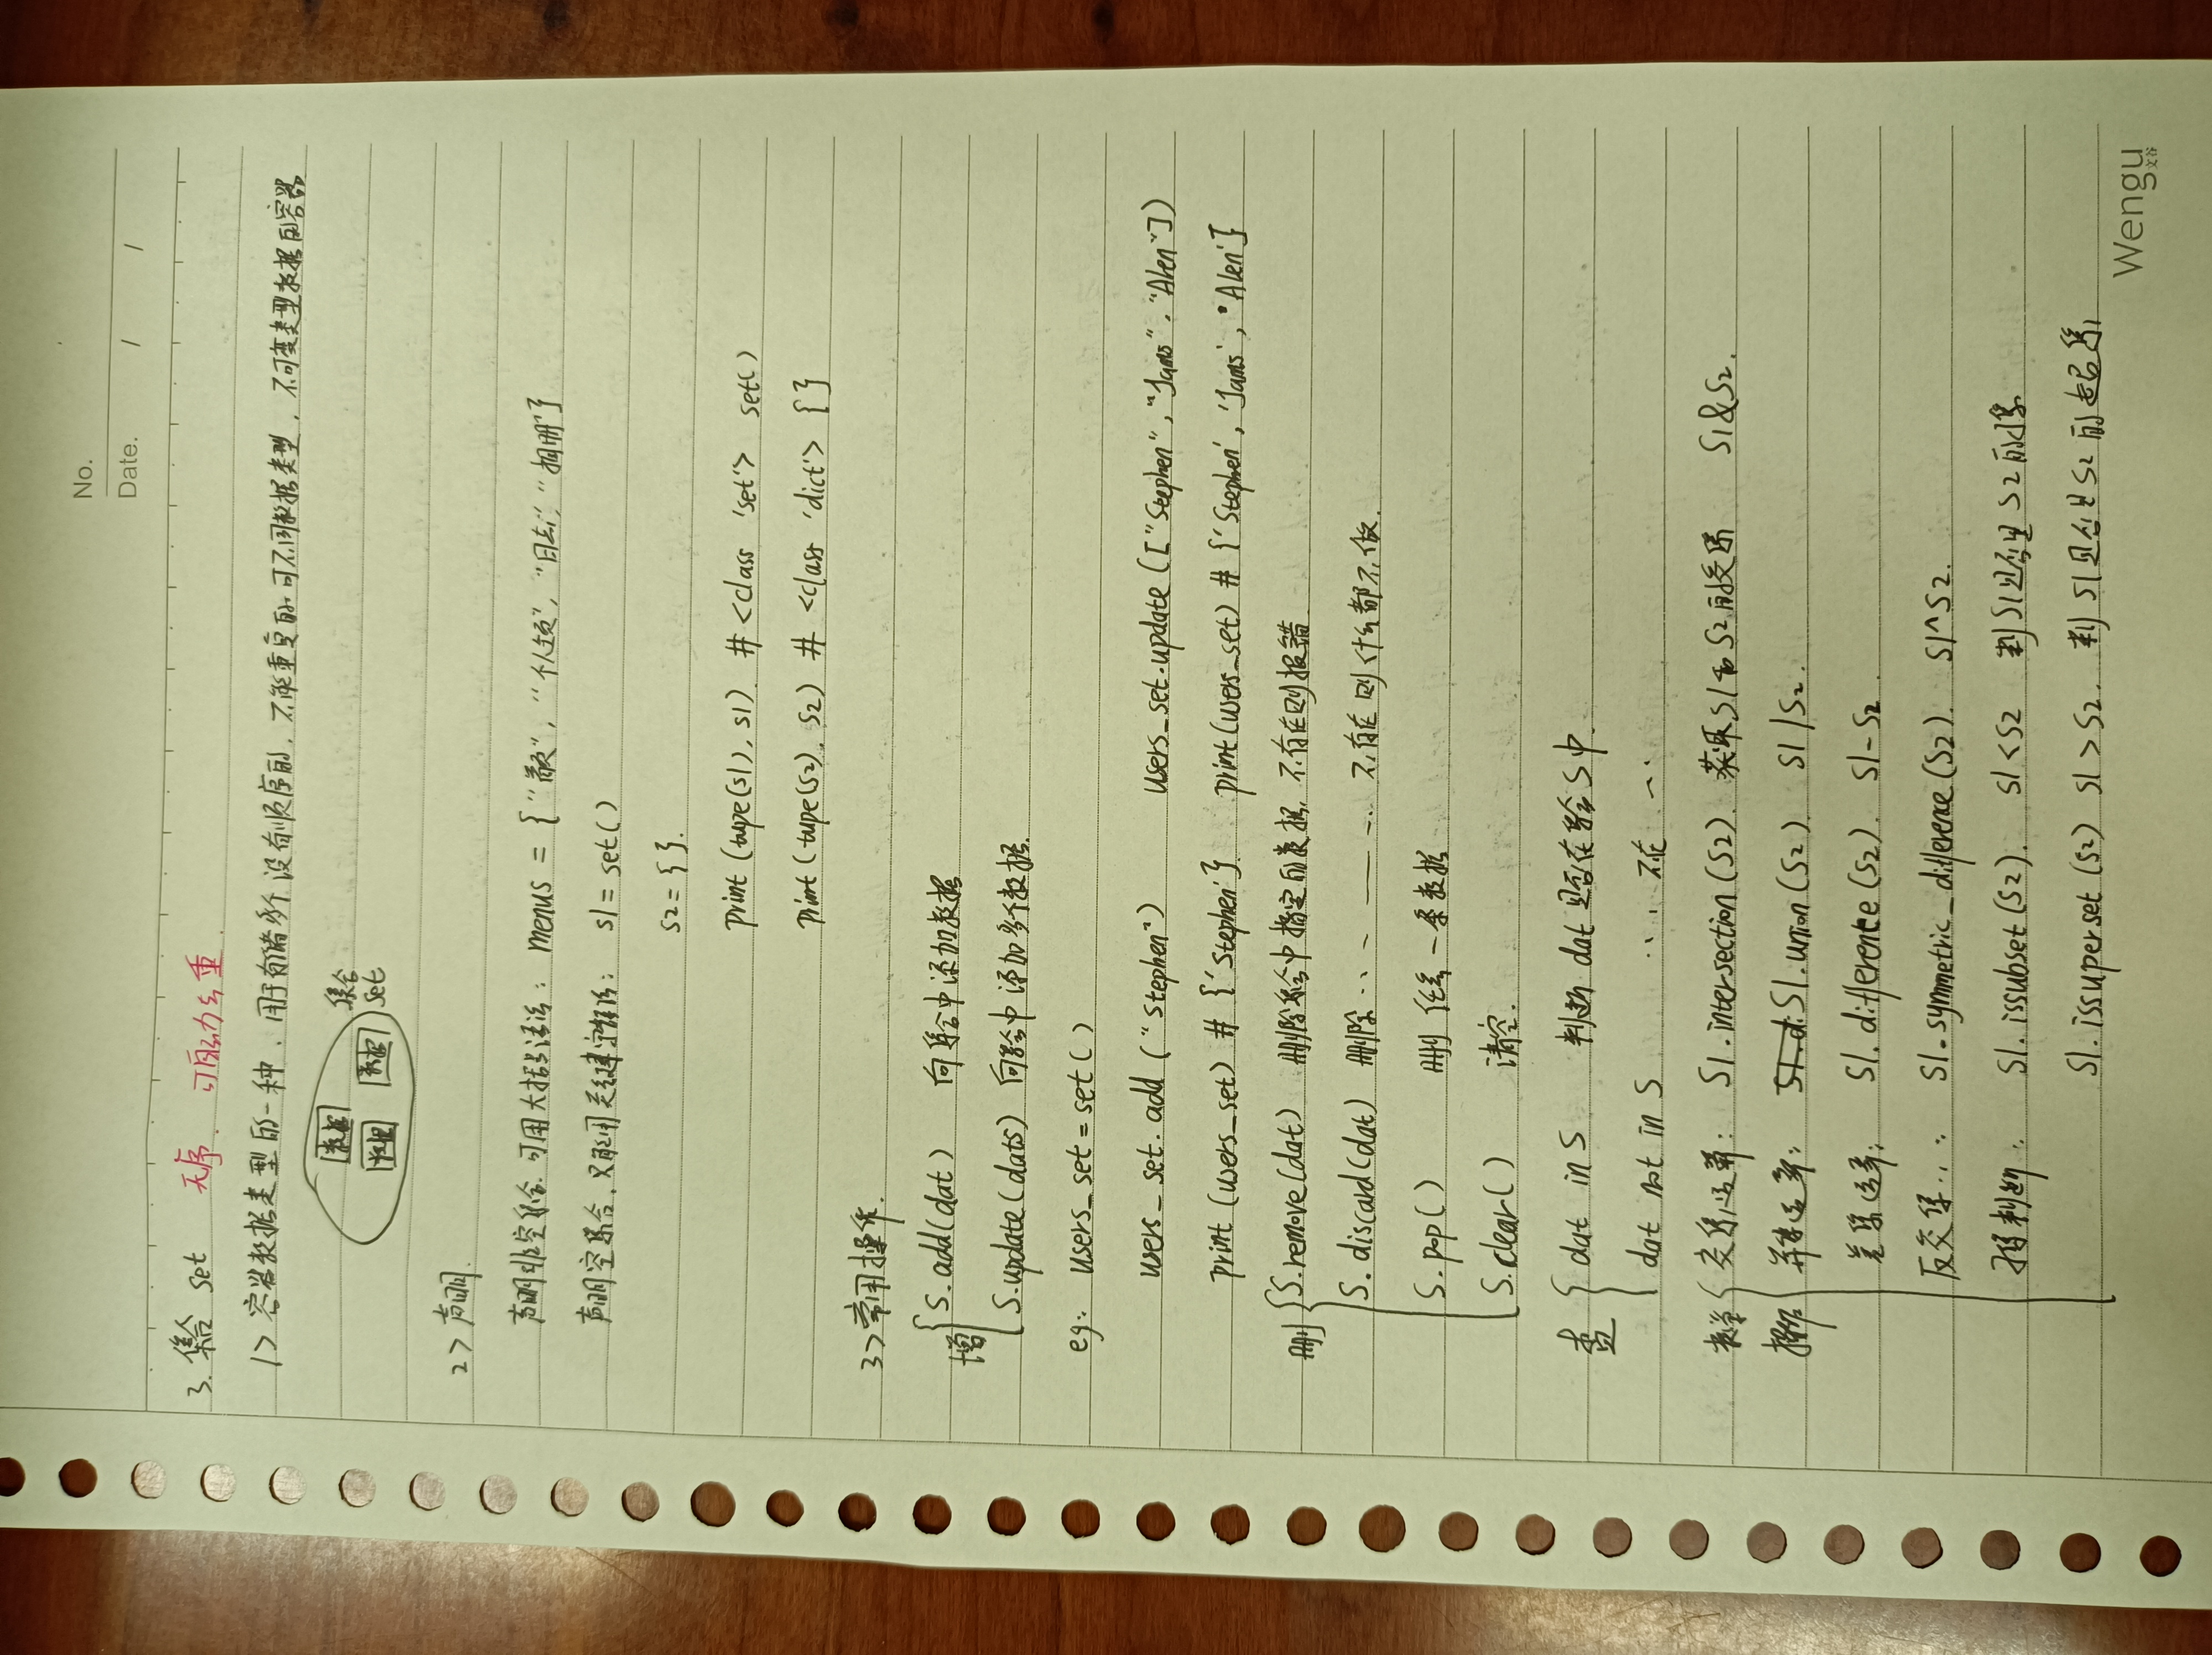 No.
Date. / /
3. 集合 set 无序. 可自动去重.
1> 容器数据类型的一种, 用于存储多个没有顺序的, 不能重复的可不同数据类型, 不可变类型数据的容器
数据 集合
数据 数据 set
2> 声明.
声明非空集合. 可用大括号语法: menus = {"首页", "个人主页", "日志", "相册"}
声明空集合, 只能用关键字语法: s1 = set()
s2 = { }.
print (type(s1), s1) # <class 'set'> set()
print (type(s2), s2) # <class 'dict'> { }
3> 常用操作.
增 S.add(dat) 向集合中添加数据
S.update(dats) 向集合中添加多个数据.
eg: users_set = set()
users_set.add ("Stephen") users_set.update (["Stephen", "Jams", "Alen"])
print (users_set) # {'Stephen'} print(users_set) # {'Stephen', 'Jams', 'Alen'}
删 S.remove(dat) 删除集合中指定的数据, 不存在则报错
S.discard(dat) 删除 ·· - —— -·· 不存在则什么都不做.
S.pop() 删 任意一条数据
S.clear() 清空.
查 dat in S 判断 dat 是否在集合S中.
dat not in S ··· 不在 -··
交集运算: S1.intersection(S2). 获取S1和S2的交集 S1&S2.
操作 并集运算: S1.d: S1.union(S2). S1|S2.
差集运算: S1.difference(S2). S1-S2.
反交集··: S1.symmetric_difference(S2). S1^S2.
子集判断: S1.issubset(S2). S1<S2 判S1是否是S2的子集
S1.issuperset(S2) S1>S2. 判S1是否是S2的超集
Wengu
文谷